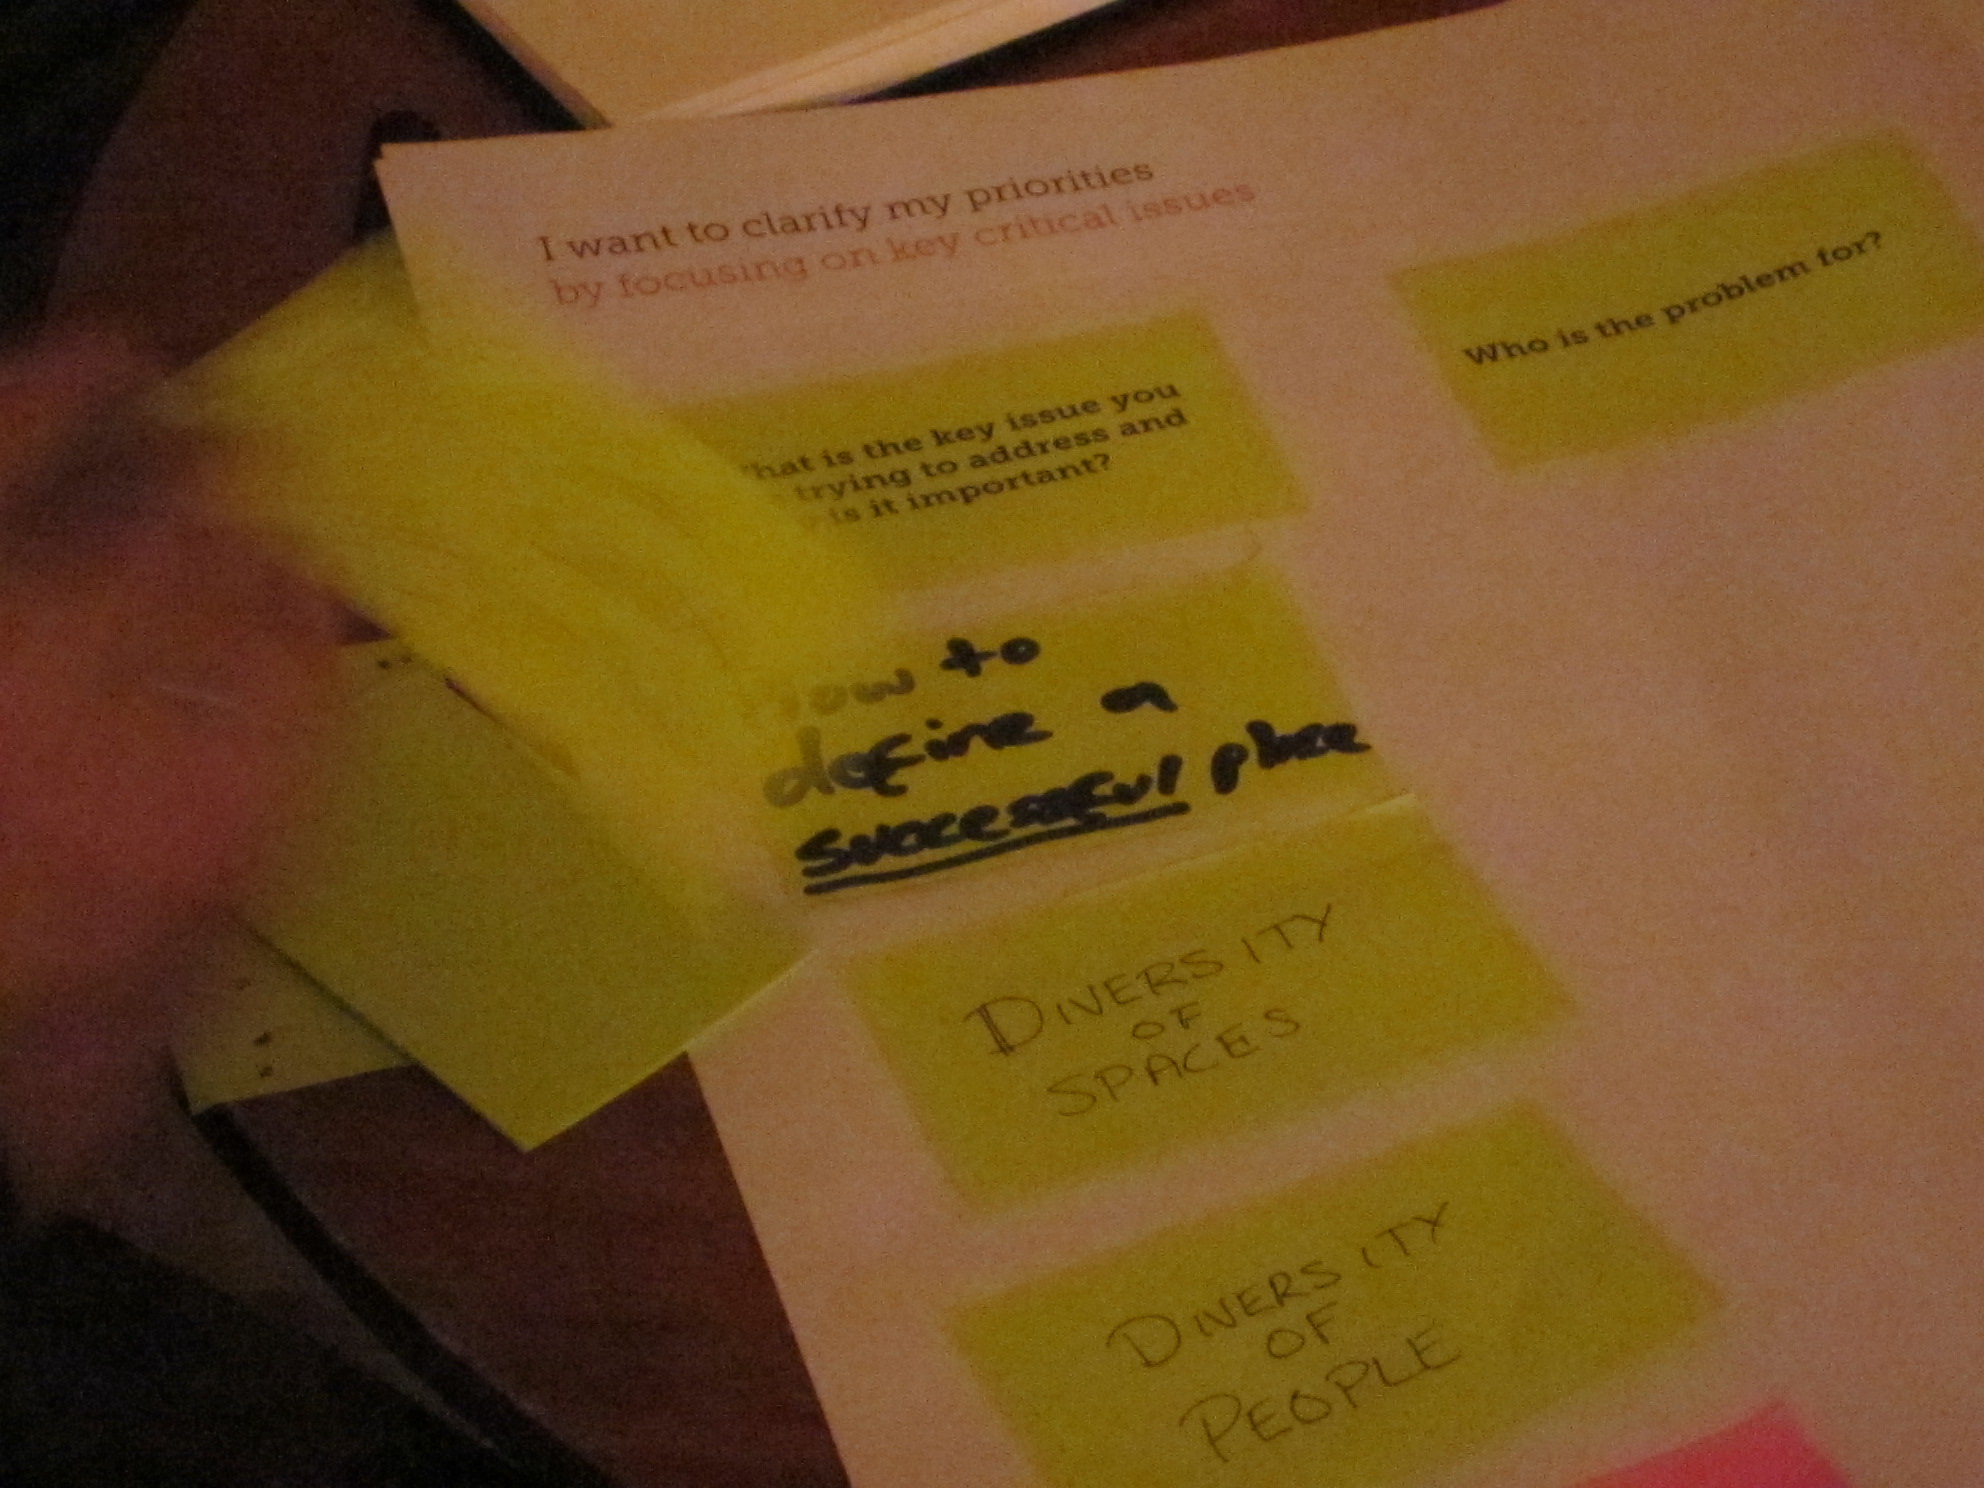 I want to clarify my priorities
by focusing on key critical issues
Who is the problem for?
What is the key issue you
trying to address and
is it important?
How to
define a
successful place
DIVERSITY
OF
SPACES
DIVERSITY
OF
PEOPLE